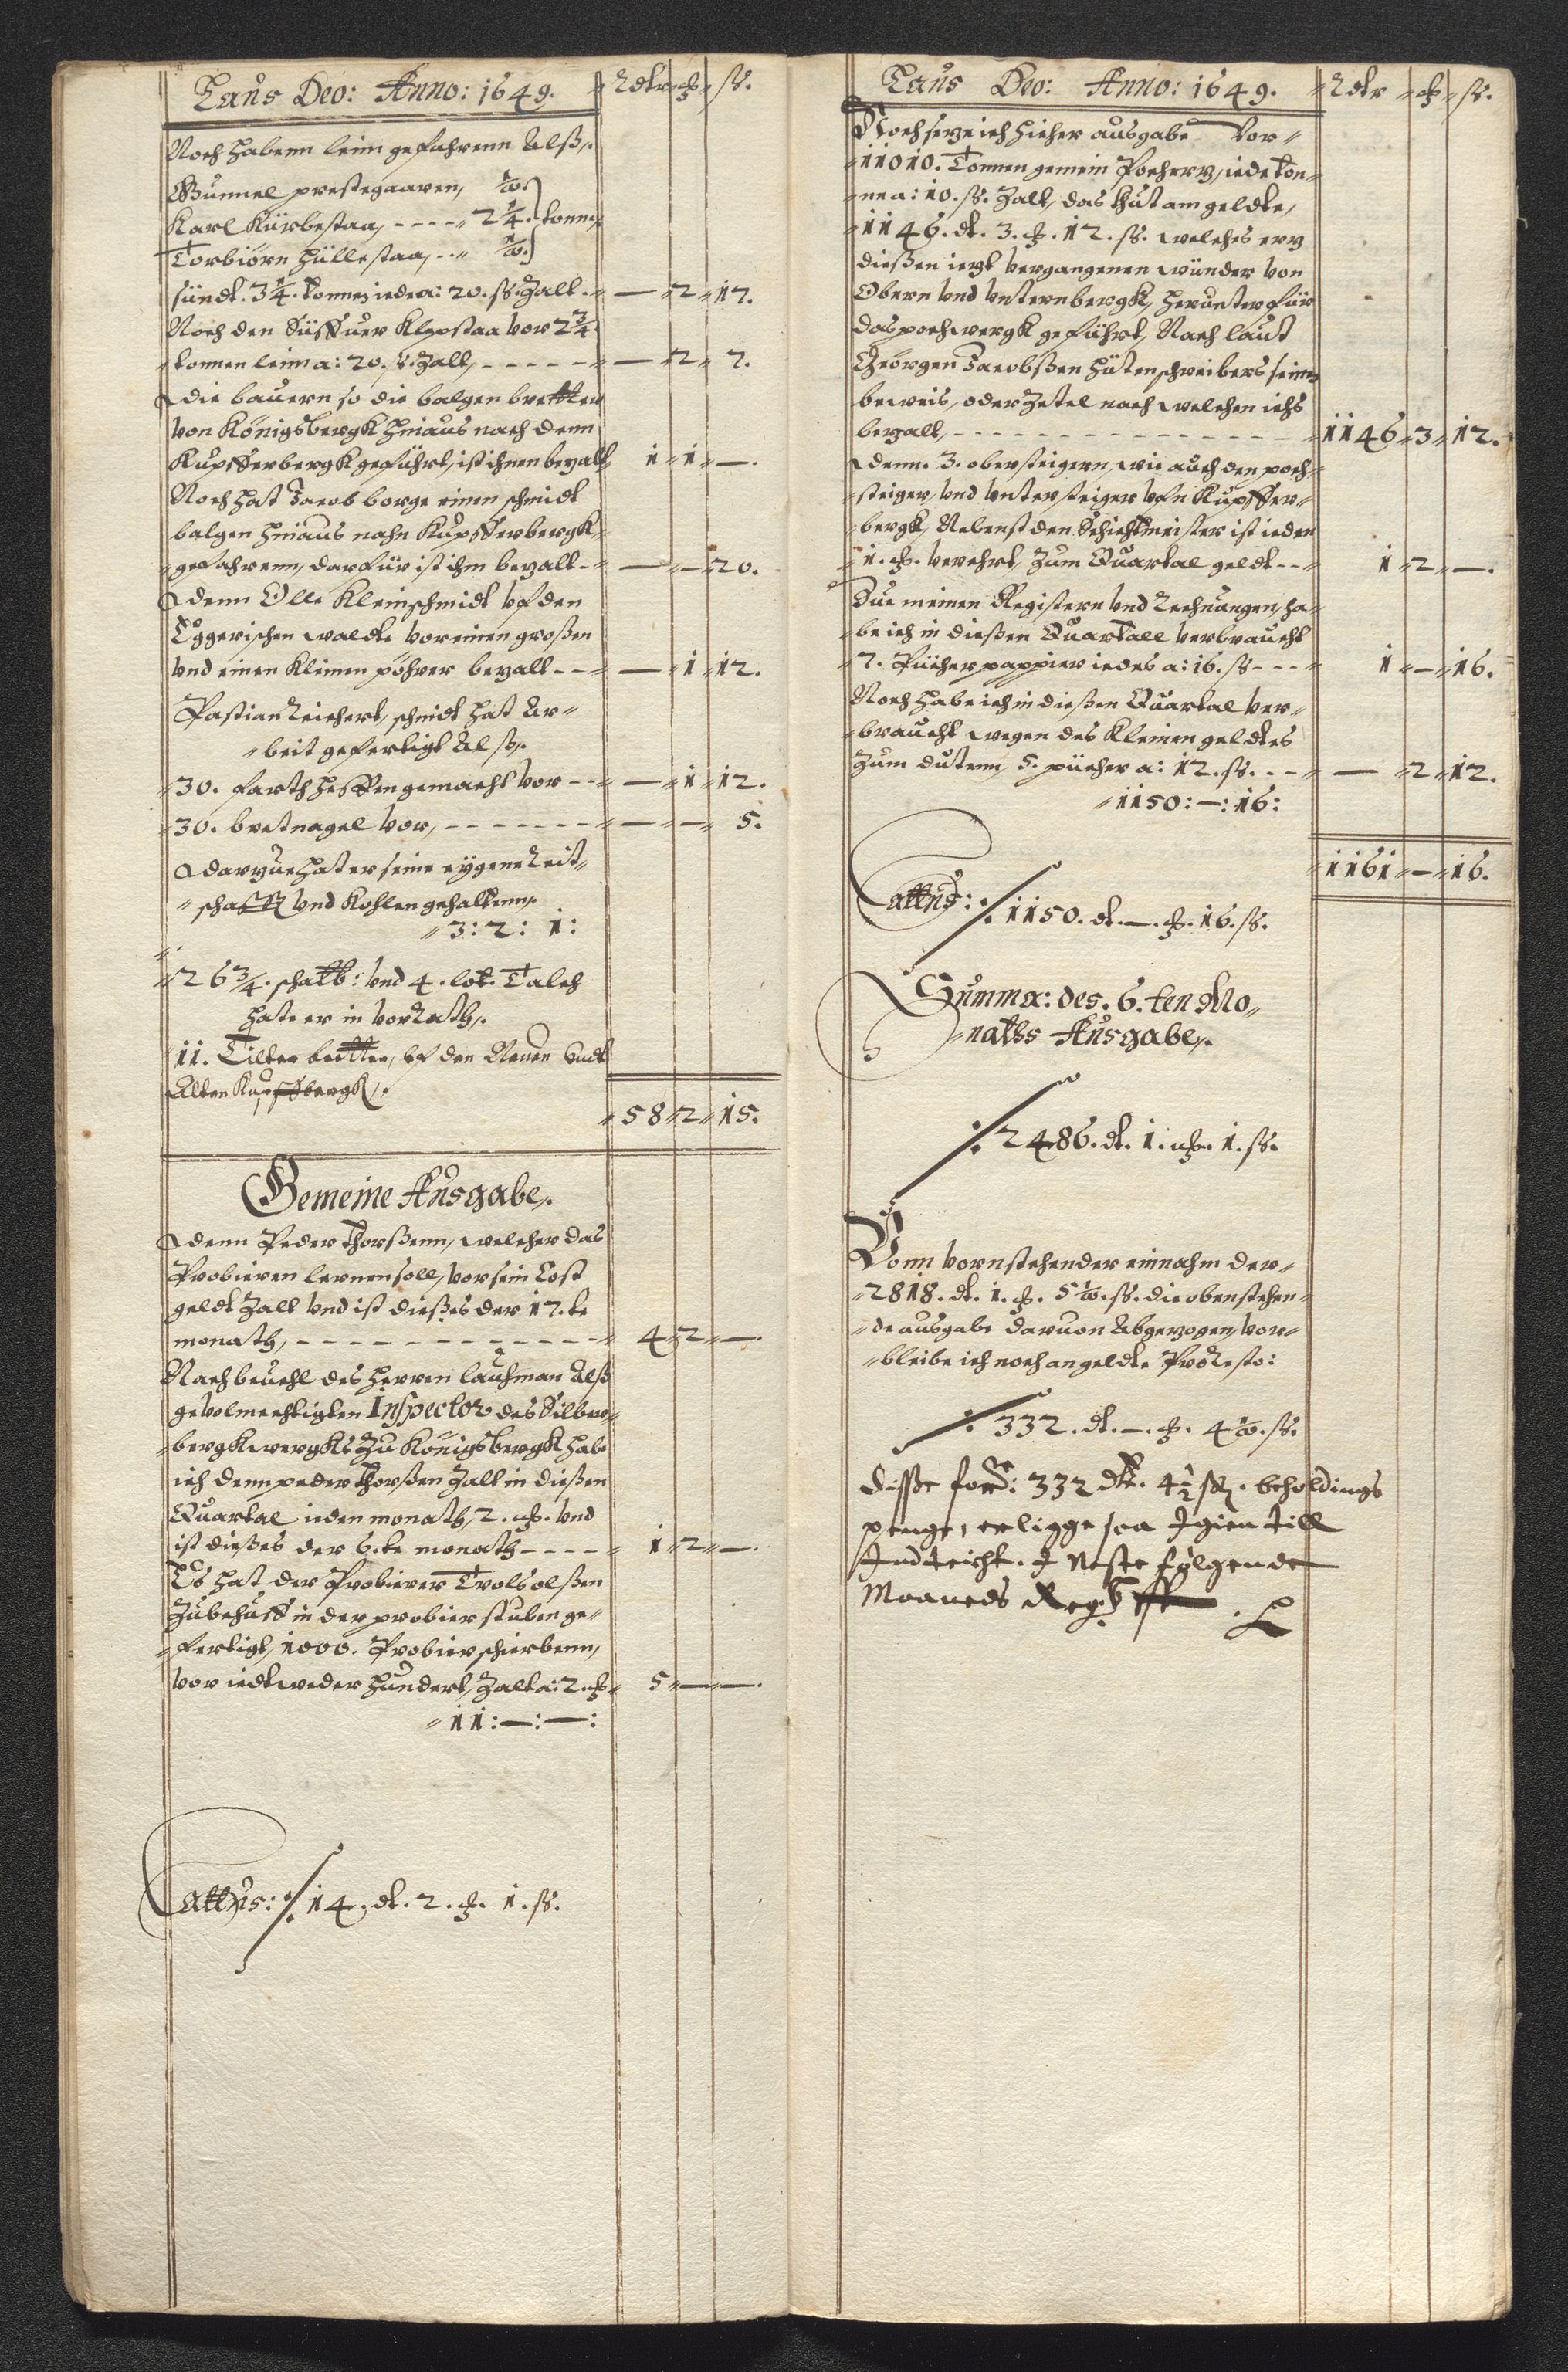 Laus Deo: Anno: 1649. Rdlr ₰ ß.
Noch habenn leim gefahrenn Alß,.
Gunnel prestegaaren, ½.
Karl Kürbestaa, - - - - 2¼. tonne,
Torbiörn Hüllestaa, - - ½.
sündt. 3¼. tonne, iede a: 20. ß. Zalt - — 2 17.
Noch den Süffuer Klepstaa vor 2¾
tonnen leim a: 20. ß. Zalt, - - - - - — 2 7.
denn bauern so die balgen bretter
von Königsbergk hinaus nach denn
Kupfferbergk geführt, ist ihnen bezalt, 1 1 —.
Noch hat Jacob borge einen schmidt
balgen hinaus nahn Kupfferbergk,
gefahrenn, darfür ist ihm bezalt - — — 20.
denn Olle Kleinschmidt uf den
Eggerischen walde vor einen großen
vnd einen Kleinen pöhrer bezalt - - — 1 12.
Pastian Reichert, schmidt hat Ar-
beit gefertigt Alß,.
30. farth heffen gemacht vor - - — 1 12.
30. bretnagel vor, - - - - - - - — — 5.
darzue hat er seine eygene Zeit-
schafft vnd Kohlen gehaltenn,.
3: 2: 1:
26¾. schalb: vnd 4. lot. Talch
hate er in vorrath,.
11. Tilter bretter, vf den Neuen vndt
Alten Kupffbergk,.
58 2 15.
Gemeine Ausgabe,.
denn Peder Thorßenn, welcher das
Probieren lernen soll, vor sein Cost
geldt Zalt vnd ist dießes der 17. te
monath, - - - - - - - - - - - - 4 2 —.
Nach beuehl des herren lauhman Alß
gevolmechtigten Inspector des Silber-
bergkwergks Zu Königsbergk habe
ich denn peder Thorßen Zalt in dießen
Quartal ieden monath, 2. ₰. vnd
ist dießes der 6. te monath - - - - 1 2 —.
Es hat der Probierer Trols olßen
Zu behuff in der probier stuben ge-
fertigt, 1000. Probier schierbenn,
vor iedtweder hundert, Zalt a: 2. ₰ 5 — —.
11: —: —:
Lattus: ⁒ 14. dl. 2. ₰. 1. ß.
Laus Deo: Anno: 1649. Rdlr ₰ ß.
Noch seze ich hieher ausgabe vor-
11010. Tonnen gemein Pocherz, iede ton-
ne a: 10. ß. Zalt, das thut am geldte,
1146. dl. 3. ₰. 12. ß. welches erz
dießen iezt vergangenen wünder von
Obern vnd vnternbergk, herunter für
das pochwergk geführt, Nach laut
Geörgen Jacobßen hütenschreibers seinen
beweis, oder Zetel nach welchen ichs
bezalt, - - - - - - - - - - - - - 1146 3 12.
denn. 3. obersteigern, wie auch den poch-
steiger, vnd vntersteiger ufn Kupffer-
bergk, Nebenst den Schichtmeister ist ieden
1. ₰. verehrt, Zum Quartal geldt - - 1 2 —.
Zue meinen Registern vnd Rechnungen, ha-
be ich in dießen Quartall verbraucht
7. Püecher pappier iedes a: 16. ß - - - 1 — 16.
Noch habe ich in dießen Quartal ver-
braucht wegen des Kleinen geldtes
Zum dutenn, 5. püecher a: 12. ß. - - - — 2 12.
1150: —: 16:
1161 — 16.
Lattus: ⁒ 1150. dl. —. ₰. 16. ß.
Summa: des. 6. ten Mo-
naths Ausgabe,.
⁒ 2486. dl. 1. ₰. 1. ß.
Vonn vornstehender einnahm der-
2818. dl. 1. ₰. 5½. ß. die obenstehen-
de ausgabe daruon Abgezogen, vor-
bleibe ich noch an geldte Pro Resto:
⁒ 332. dl. —. ₰. 4½. ß.
disse ford: 332 dlr. 4½ ß. beholdings
penge, er ligge saa Igien till
Indteicht. I neste følgende
Maaneds Reg: